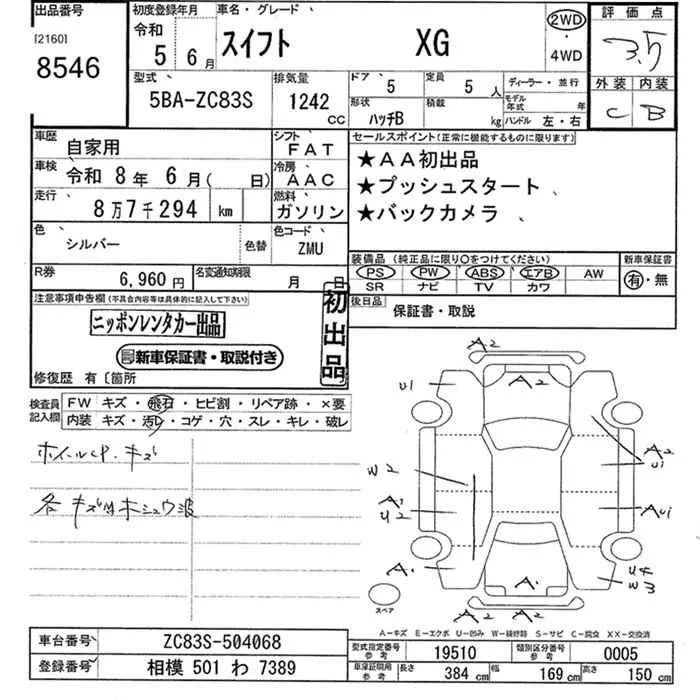 出品番号
[2160]
8546
初度登録年月
令和
5年 6月
車名・グレード
スイフト XG
2WD
・
4WD
評価点
3.5
外装 内装
C B
型式
5BA-ZC83S
排気量
1242
CC
ドア
5
定員
5人
ディーラー・並行
形状
ハッチB
積載
kg
モデル年式 年
ハンドル 左・右
車歴
自家用
シフト
FAT
車検
令和 8年 6月( 日)
冷房
AAC
走行
8万7千294 km
燃料
ガソリン
色
シルバー
色替
色コード
ZMU
R券
6,960円
名変通知期限
月 日
セールスポイント(正常に機能するものに限ります)
★AA初出品
★プッシュスタート
★バックカメラ
装備品 (純正品に限り○をつけてください)
PS PW ABS エアB AW
SR ナビ TV カワ
新車保証書
有・無
後日品
保証書・取説
注意事項申告欄(不具合内容等は具体的に記入して下さい)
ニッポンレンタカー出品
新車保証書・取説付き
初出品
修復歴 有〔箇所
検査員記入欄
FW キズ・飛石・ヒビ割・リペア跡・×要
内装 キズ・汚レ・コゲ・穴・スレ・キレ・破レ
ホイールCP.キズ
各キズ凹ホシュウ波
A2
A2
U1
A2
U1
W2
A1
U2
AU1
A1
A1
U4
W3
A2 A2
スペア
A-キズ E-エクボ U-凹み W-補修跡 S-サビ C-腐食 XX-交換済
車台番号
ZC83S-504068
登録番号
相模 501 わ 7389
型式指定番号
参考
19510
類別区分番号
参考
0005
車庫証明用
参考
長さ
384cm
幅
169cm
高さ
150cm